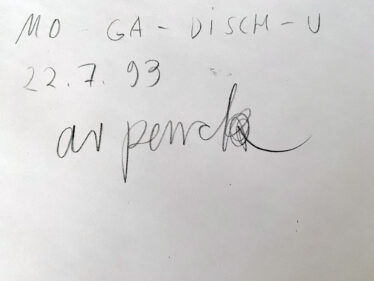 MO GA - DISCH - U
22.7.93
ar penck